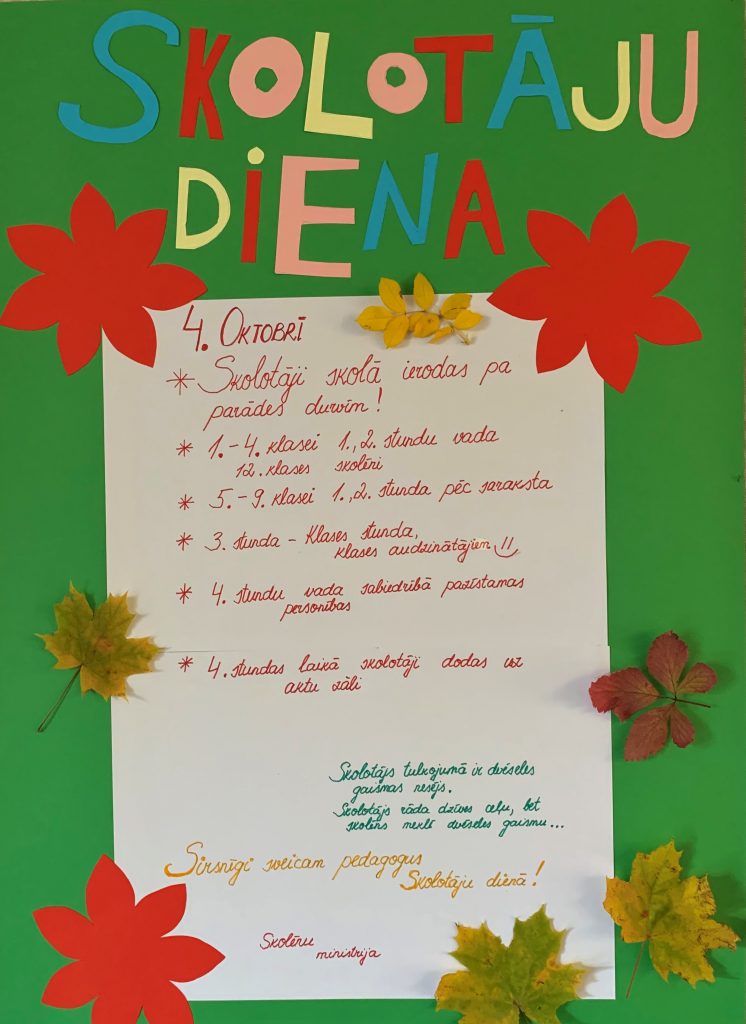 SKOLOTĀJU
DIENA
4. OKTOBRĪ
* Skolotāji skolā ierodas pa
parādes durvīm!
* 1.-4. klasei 1.,2. stundu vada
12. klases skolēni
* 5.-9. klasei 1.,2. stunda pēc saraksta
* 3. stunda - Klases stunda,
klases audzinātājiem
* 4. stundu vada sabiedrībā pazīstamas
personības
* 4. stundas laikā skolotāji dodas uz
aktu zāli
Skolotājs tulkojumā ir dvēseles
gaismas nesējs.
Skolotājs rāda dzīves ceļu, bet
skolēns meklē dvēseles gaismu...
Sirsnīgi sveicam pedagogus
Skolotāju dienā!
Skolēnu
ministrija